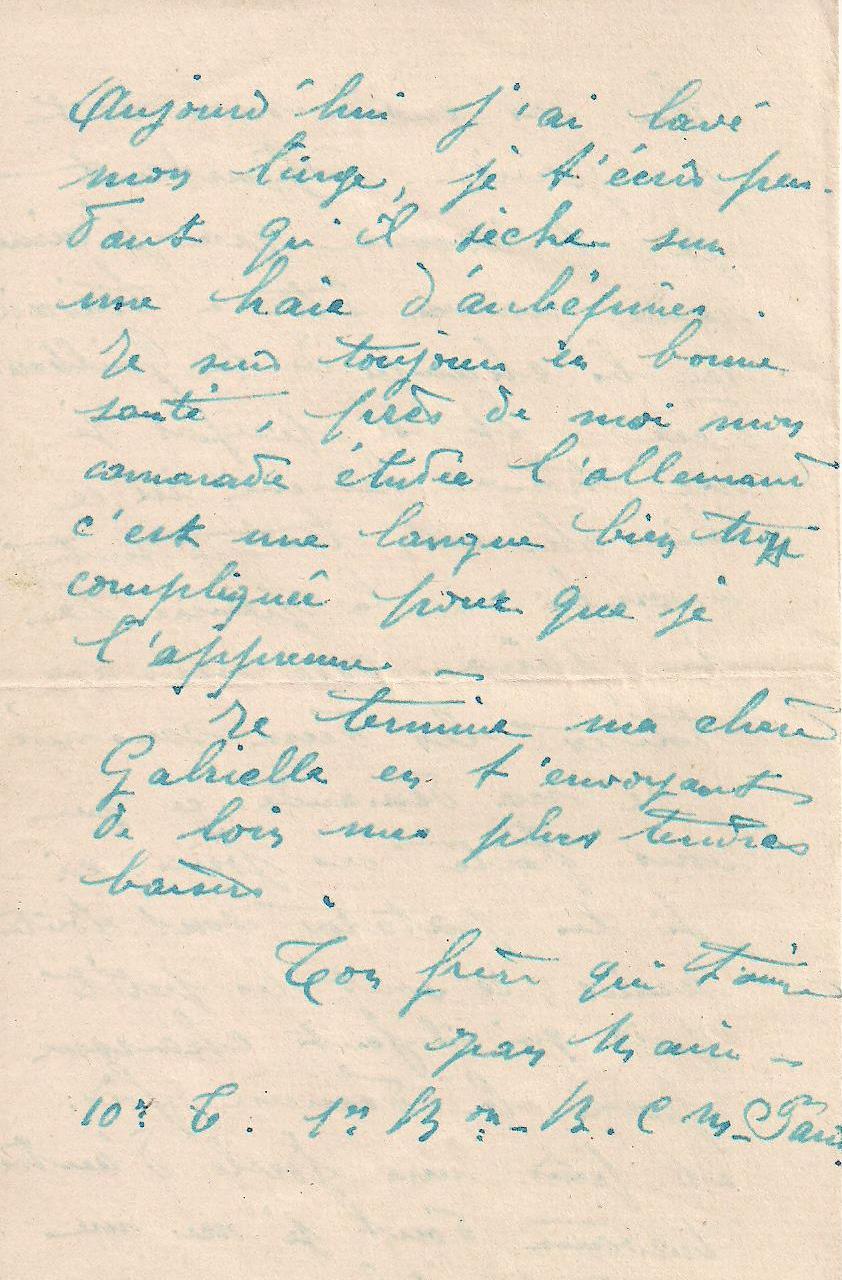 Aujourd'hui j'ai lavé
mon linge, je t'écris pen-
dant qu'il sèche sur
une haie d'aubépines.
Je suis toujours en bonne
santé, près de moi mon
camarade étudie l'allemand
c'est une langue bien trop
compliquée pour que je
l'apprenne –
Je termine ma chère
Gabrielle en t'envoyant
de loin mes plus tendres
baisers.
Ton frère qui t'aime
10e C. 1er Bon – B. C. M. Paris